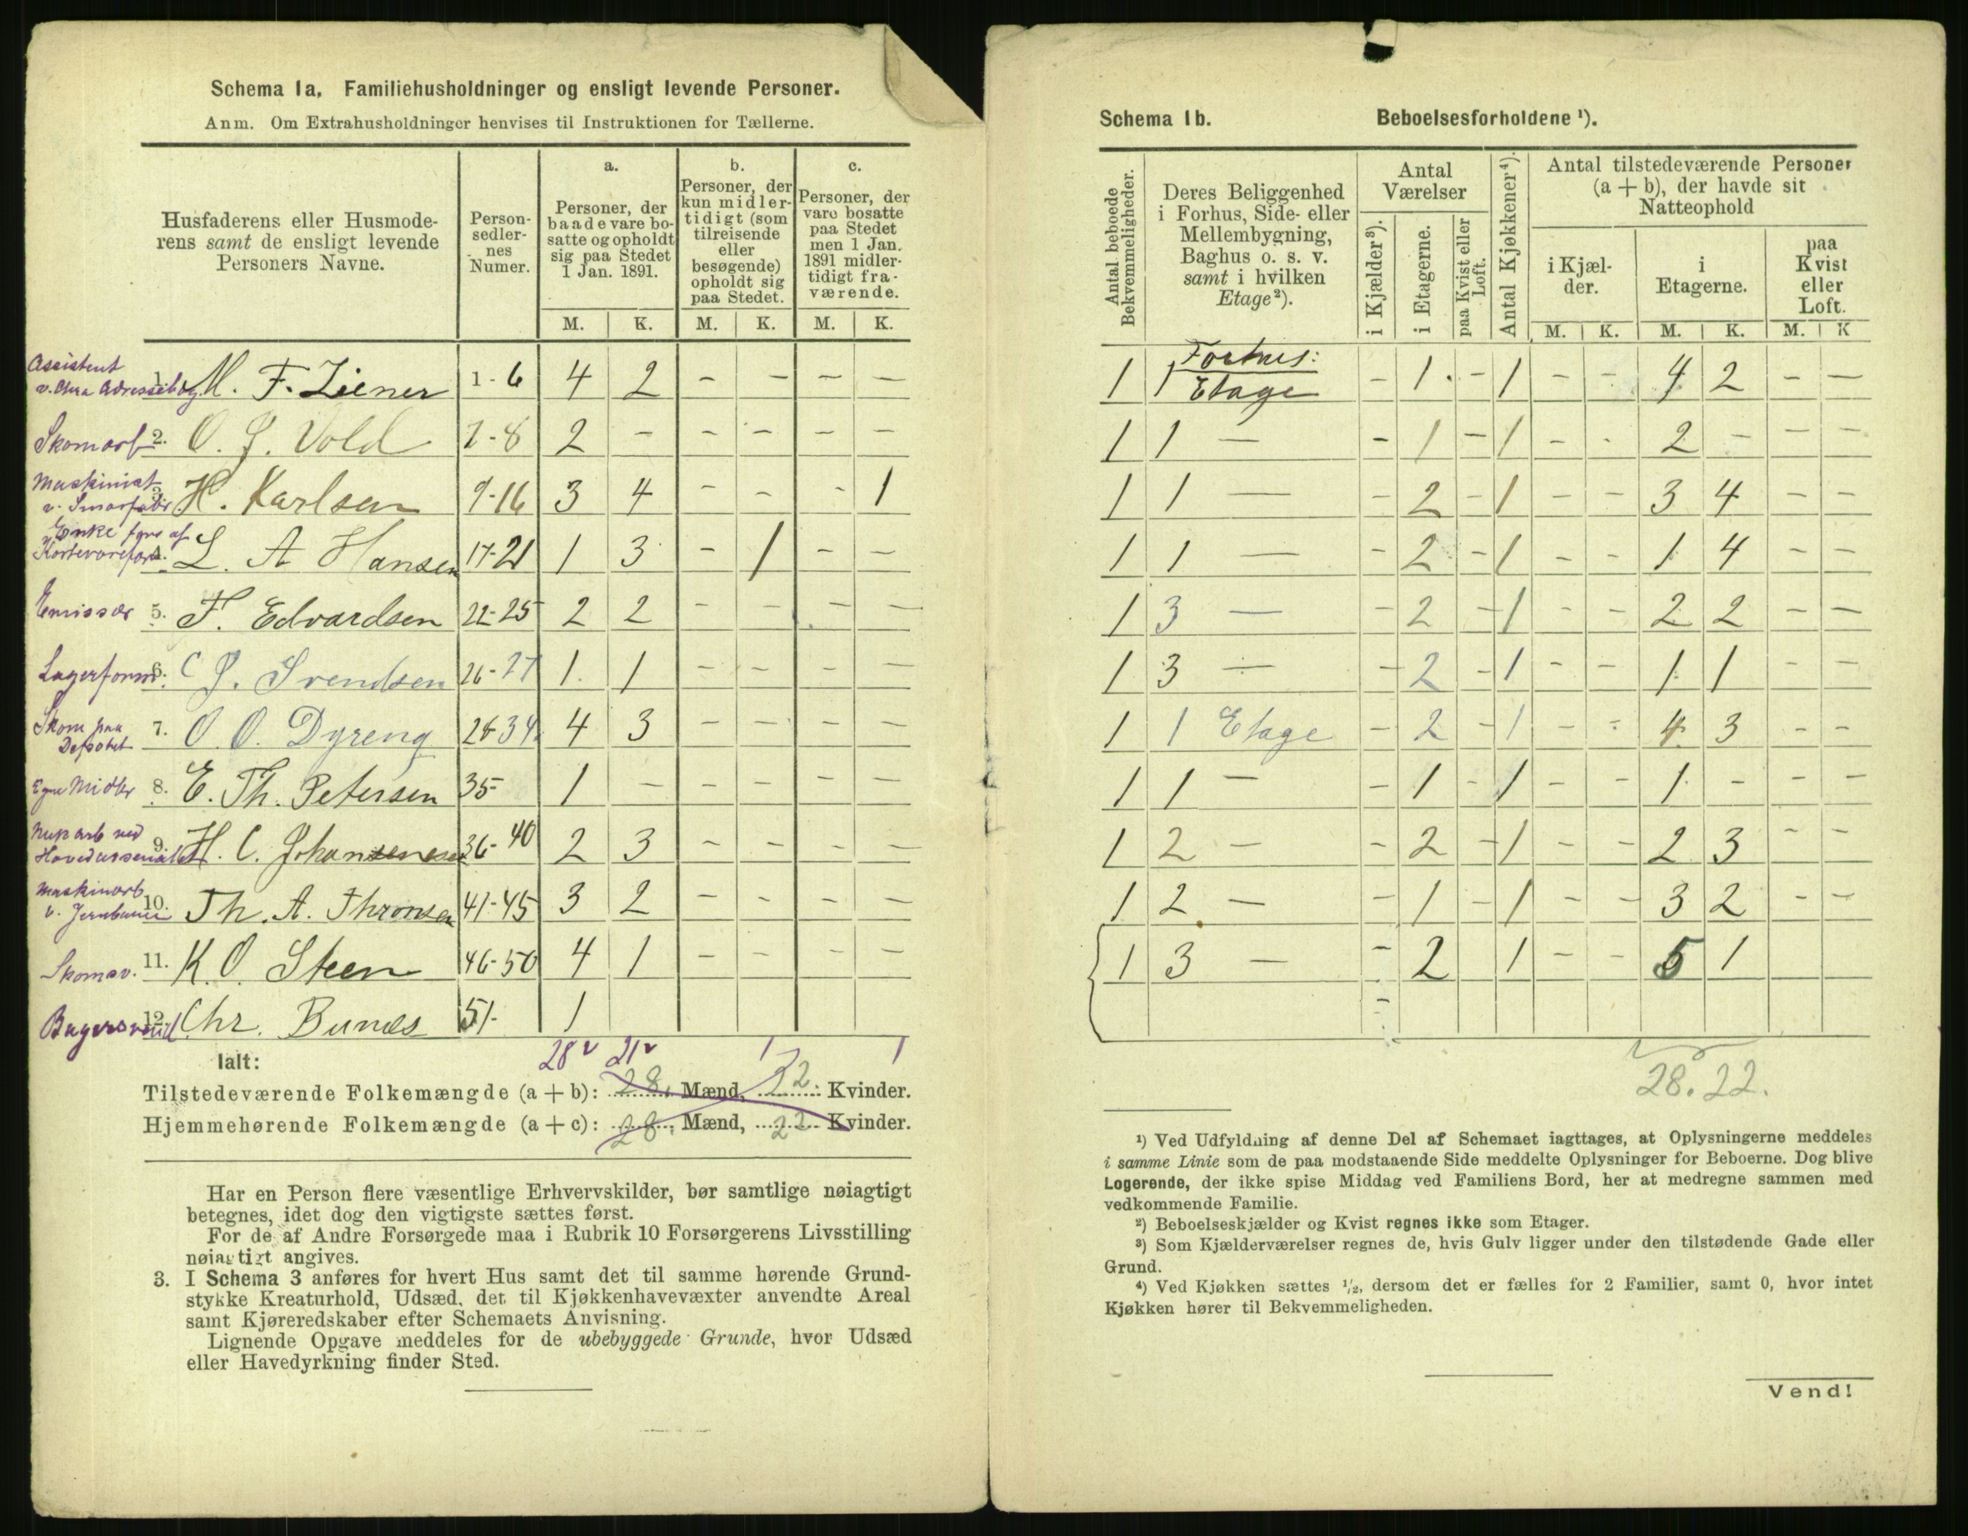 Schema 1a. Familiehusholdninger og ensligt levende Personer.
Anm. Om Extrahusholdninger henvises til Instruktionen for Tællerne.
Husfaderens eller Husmoderens samt de ensligt levende Personers Navne.
Personsedlernes Numer.
a. Personer, der baade vare bosatte og opholdt sig paa Stedet 1 Jan. 1891.
b. Personer, der kun midlertidigt (som tilreisende eller besøgende) opholdt sig paa Stedet.
c. Personer, der vare bosatte paa Stedet men 1 Jan. 1891 midlertidigt fraværende.
M. K. M. K. M. K.
Assistent
1. M. F. Ziener 1-6 4 2 - - - -
Skomarb 2. O. J. Vold 7-8 2 - - - - -
Maskinist
3. H. Karlsen 9-16 3 4 - - - 1
Enke
4. L. A Hansen 17-21 1 3 - 1 - -
Emissær 5. F. Edvardsen 22-25 2 2 - - - -
Lagerform 6. C J. Svendsen 26-27 1 1 - - - -
Skom paa Depotet 7. O. O. Dyreng 28-34 4 3 - - - -
Egne Midler 8. E. Th. Petersen 35- 1 - - - - -
9. H. C. Johansen 36-40 2 3 - - - -
Maskinarb
v. Jernbanen 10. Th. A. Thronsen 41-45 3 2 - - - -
Skomsv. 11. K. O. Steen 46-50 4 1 - - - -
Bagersvend 12. Chr. 51- 1
Ialt: 28 21 1 1
Tilstedeværende Folkemængde (a + b): 28. Mænd, 22 Kvinder.
Hjemmehørende Folkemængde (a + c): 28. Mænd, 22 Kvinder.
Har en Person flere væsentlige Erhvervskilder, bør samtlige nøiagtigt
betegnes, idet dog den vigtigste sættes først.
For de af Andre Forsørgede maa i Rubrik 10 Forsørgerens Livsstilling
nøiagtigt angives.
3. I Schema 3 anføres for hvert Hus samt det til samme hørende Grund-
stykke Kreaturhold, Udsæd, det til Kjøkkenhavevæxter anvendte Areal
samt Kjøreredskaber efter Schemaets Anvisning.
Lignende Opgave meddeles for de ubebyggede Grunde, hvor Udsæd
eller Havedyrkning finder Sted.
Schema 1b. Beboelsesforholdene ¹).
Antal beboede Bekvemmeligheder.
Deres Beliggenhed i Forhus, Side- eller Mellembygning, Baghus o. s. v. samt i hvilken Etage²).
Antal Værelser
i Kjælder³). i Etagerne. paa Kvist eller Loft.
Antal Kjøkkener⁴).
Antal tilstedeværende Personer (a + b), der havde sit Natteophold
i Kjælder. i Etagerne. paa Kvist eller Loft.
M. K. M. K. M. K
Forhus:
1 1 Etage - 1 - 1 - - 4 2 - -
1 1 — - 1 - 1 - - 2 - - -
1 1 — - 2 - 1 - - 3 4 - -
1 1 — - 2 - 1 - - 1 4 - -
1 3 — - 2 - 1 - - 2 2 - -
1 3 — - 2 - 1 - - 1 1 - -
1 1 Etage - 2 - 1 - - 4 3 - -
1 1 — - 1 - 1 - - 1 - - -
1 2 — - 2 - 1 - - 2 3 - -
1 2 — - 1 - 1 - - 3 2 - -
1 3 — - 2 1 - - 5 1
28. 22.
¹) Ved Udfyldning af denne Del af Schemaet iagttages, at Oplysningerne meddeles
i samme Linie som de paa modstaaende Side meddelte Oplysninger for Beboerne. Dog blive
Logerende, der ikke spise Middag ved Familiens Bord, her at medregne sammen med
vedkommende Familie.
²) Beboelseskjælder og Kvist regnes ikke som Etager.
³) Som Kjælderværelser regnes de, hvis Gulv ligger under den tilstødende Gade eller
Grund.
⁴) Ved Kjøkken sættes ¹/₂, dersom det er fælles for 2 Familier, samt 0, hvor intet
Kjøkken hører til Bekvemmeligheden.
Vend!